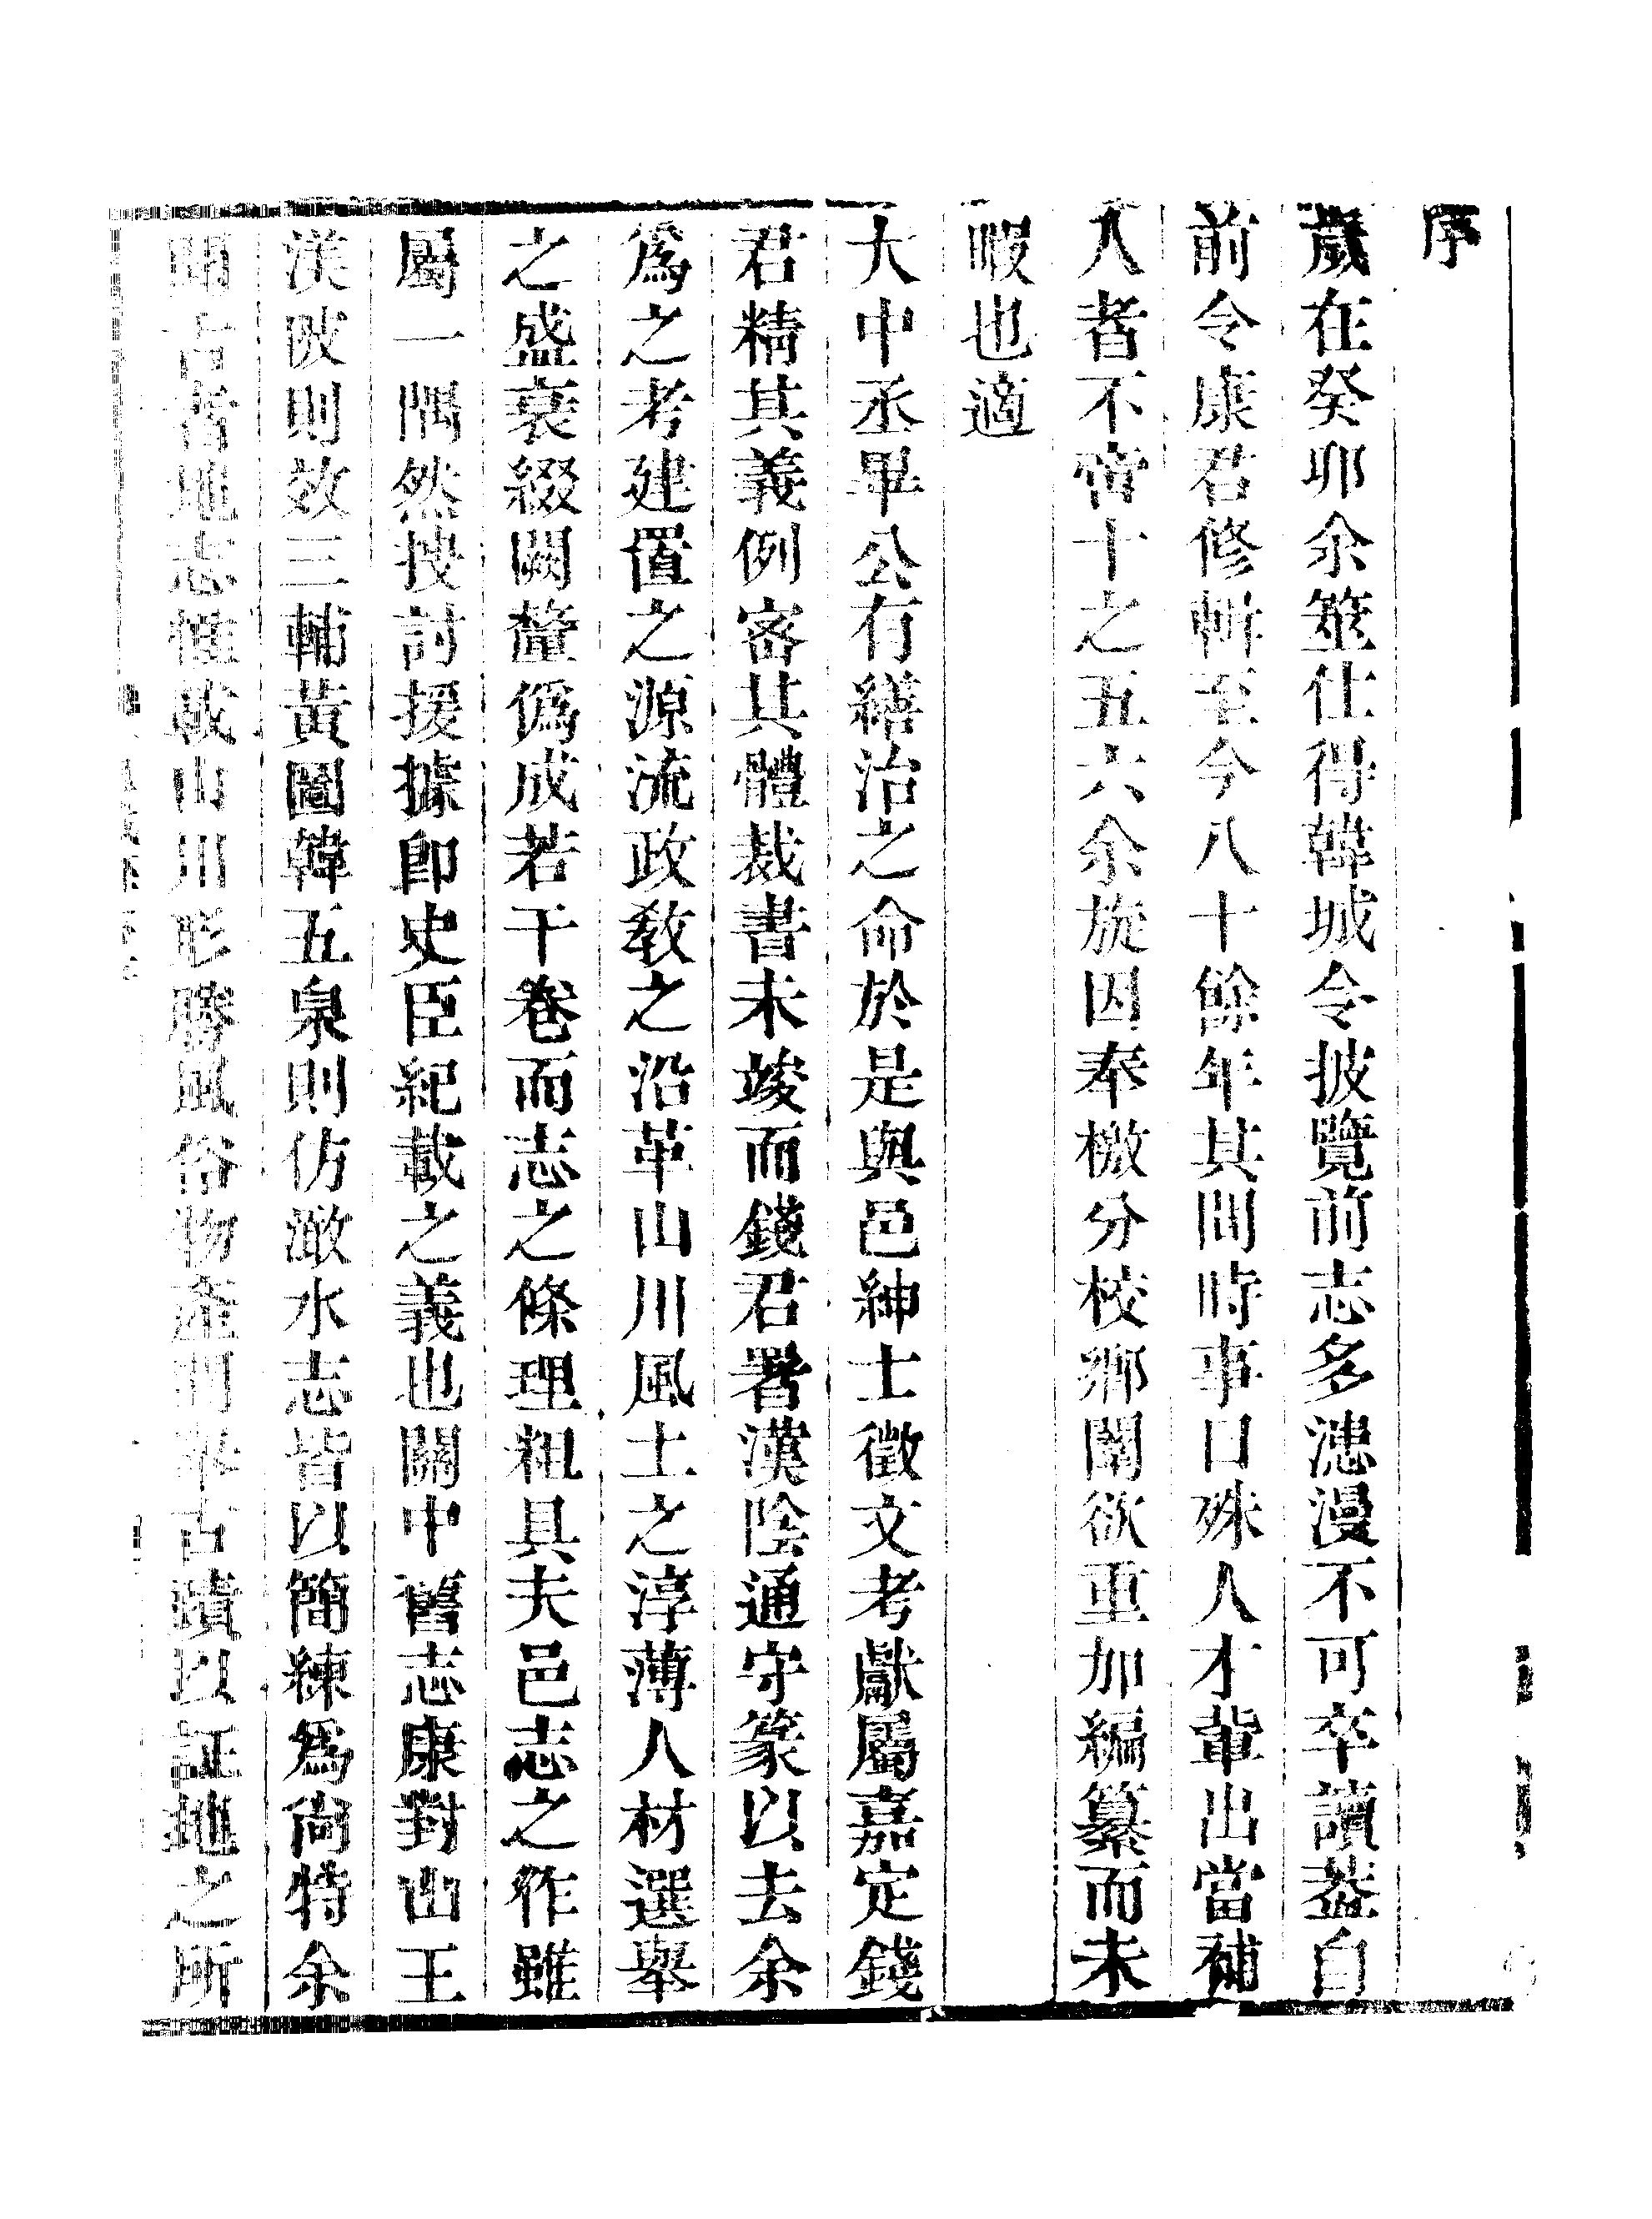 序
歲在癸卯余筮仕得韓城令披覽前志多漶漫不可卒讀葢自
前令康君修輯至今八十餘年其間時事日殊人才輩出當補
入者不啻十之五六余旋因奉檄分校鄉闈欲重加編纂而未
暇也適
大中丞畢公有繕治之命於是與邑紳士徵文考獻屬嘉定錢
君精其義例密其體裁書未竣而錢君署漢陰通守篆以去余
爲之考建置之源流政教之沿革山川風土之淳薄人材選舉
之盛衰綴闕釐僞成若干卷而志之條理粗具夫邑志之作雖
屬一隅然搜討援據卽史臣紀載之義也關中舊志康對山王
渼陂則效三輔黃圖韓五泉則仿澉水志皆以簡練爲尚特余
聞古者地志惟載山川形勝風俗物產間舉古蹟以証地之所